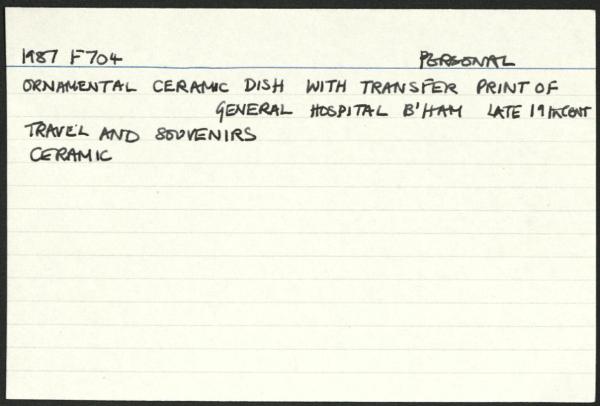 1987 F704 PERSONAL
ORNAMENTAL CERAMIC DISH WITH TRANSFER PRINT OF
GENERAL HOSPITAL B'HAM LATE 19TH CENT
TRAVEL AND SOUVENIRS
CERAMIC